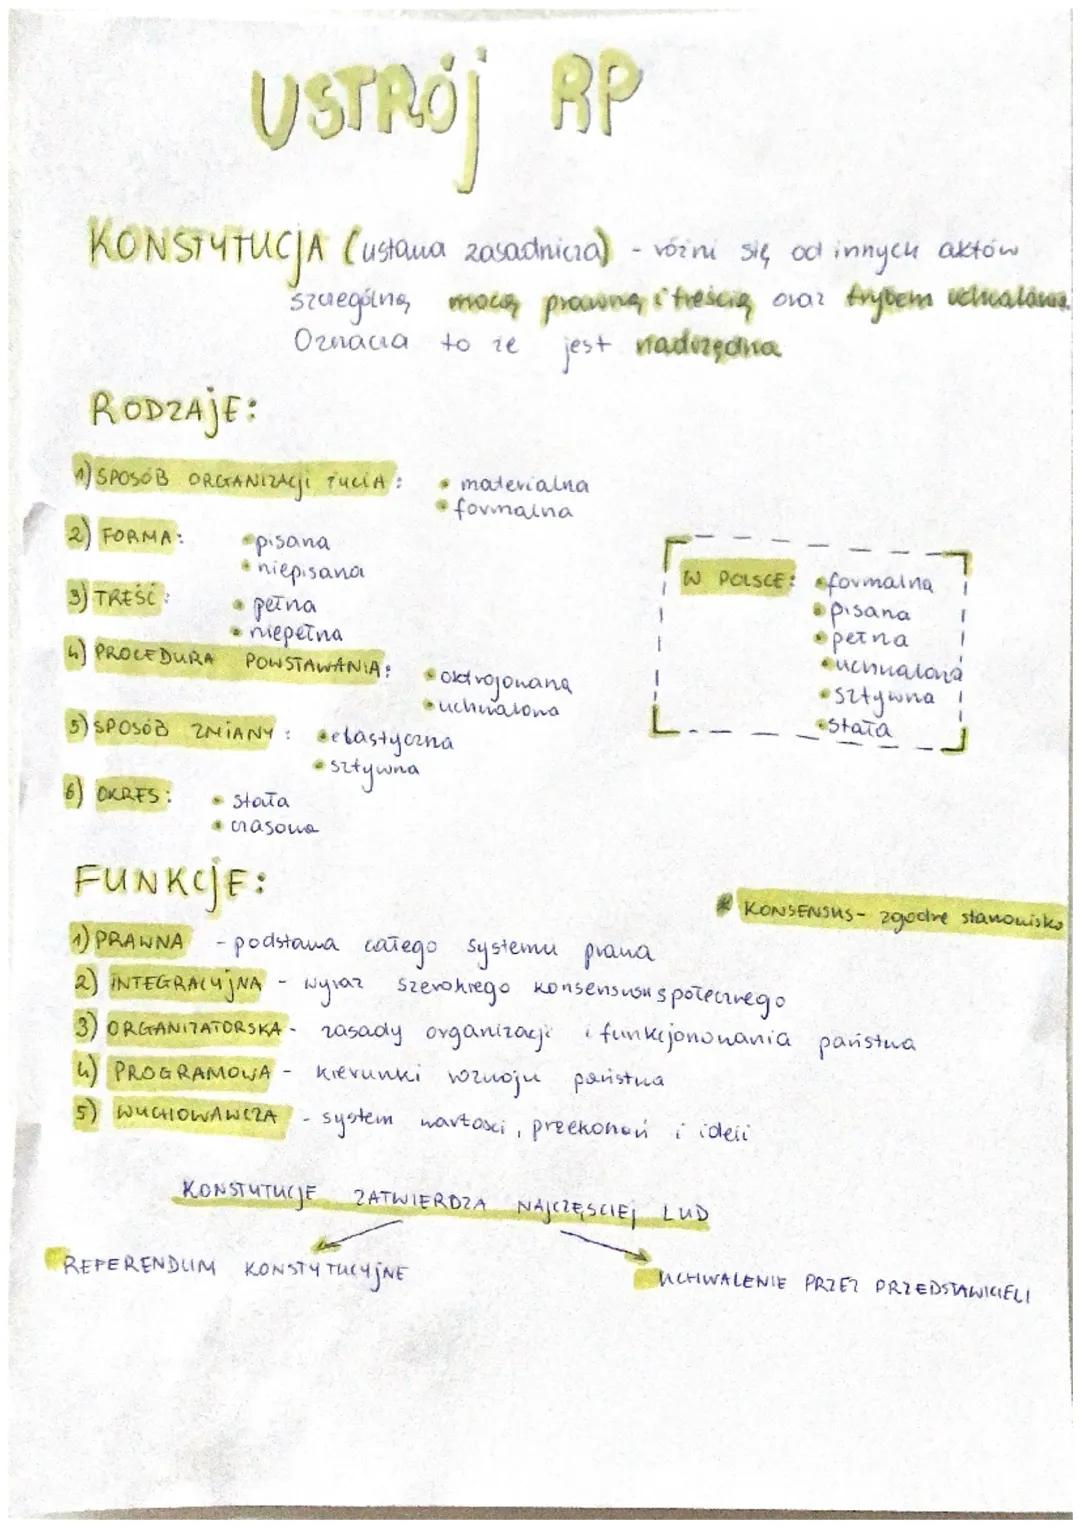 USTRÓJ RP
KONSTYTUCJA (ustawa zasadnicza) - różni się od innych aktów
szczególną mocą prawną i treścią oraz trybem uchwalania.
Oznacza to że jest nadrzędna
RODZAJE:
1) SPOSÓB ORGANIZACJI ŻYCIA: • materialna
• formalna
2) FORMA: • pisana
• niepisana
3) TREŚĆ: • pełna
• niepełna
4) PROCEDURA POWSTAWANIA: • oktrojowana
• uchwalona
5) SPOSÓB ZMIANY: • elastyczna
• sztywna
6) OKRES: • stała
• czasowa
W POLSCE: • formalna
• pisana
• pełna
• uchwalona
• sztywna
• stała
FUNKCJE:
* KONSENSUS - zgodne stanowisko
1) PRAWNA - podstawa całego systemu prawa
2) INTEGRACYJNA - wyraz szerokiego konsensusu społecznego
3) ORGANIZATORSKA - zasady organizacji i funkcjonowania państwa
4) PROGRAMOWA - kierunki rozwoju państwa
5) WYCHOWAWCZA - system wartości, przekonań i ideii
KONSTYTUCJE ZATWIERDZA NAJCZĘŚCIEJ LUD
REFERENDUM KONSTYTUCYJNE
UCHWALENIE PRZEZ PRZEDSTAWICIELI